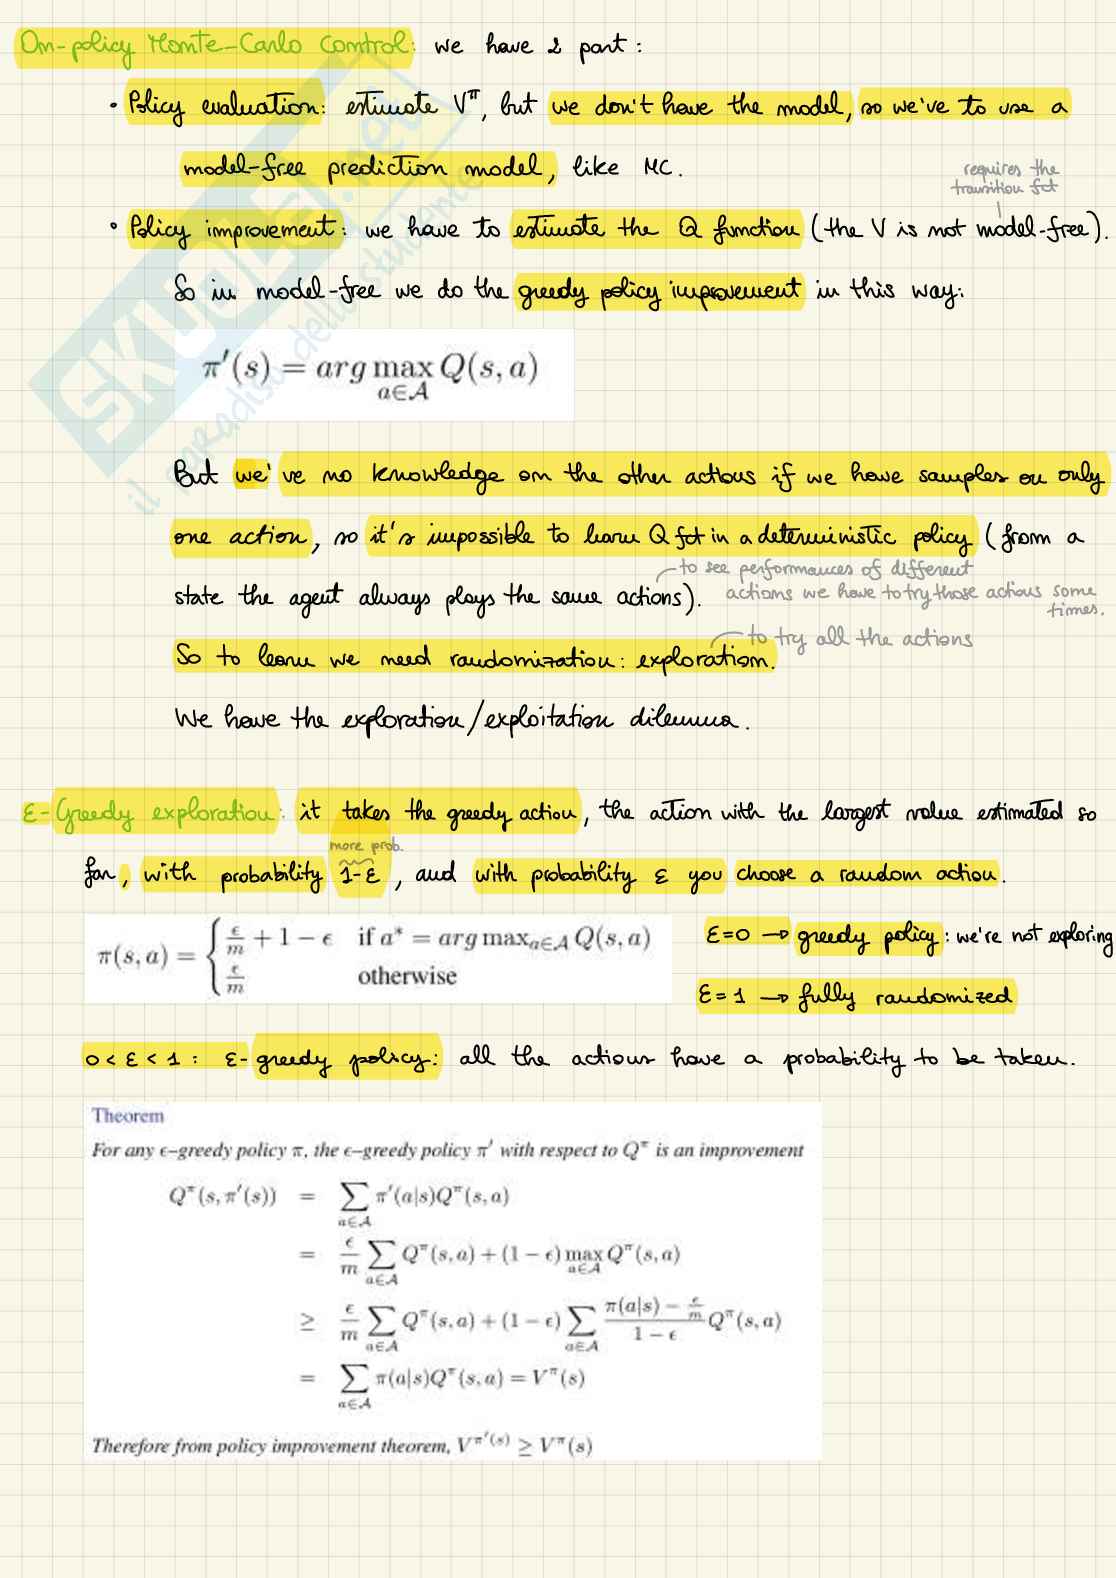 On-policy Monte-Carlo Control: we have 2 part :
• Policy evaluation: estimate V^π, but we don't have the model, so we've to use a
model-free prediction model, like MC.
requires the
transition fct
• Policy improvement: we have to estimate the Q function (the V is not model-free).
So in model-free we do the greedy policy improvement in this way:
π′(s) = arg max_{a∈A} Q(s, a)
But we've no knowledge on the other actions if we have samples on only
one action, so it's impossible to learn Q fct in a deterministic policy (from a
to see performances of different
state the agent always plays the same actions). actions we have to try those actions some
times.
to try all the actions
So to learn we need randomization: exploration.
We have the exploration/exploitation dilemma.
ε-Greedy exploration: it takes the greedy action, the action with the largest value estimated so
more prob.
far, with probability 1-ε, and with probability ε you choose a random action.
π(s, a) = { ϵ/m + 1 − ϵ if a* = arg max_{a∈A} Q(s, a)
ϵ/m otherwise
ε=0 → greedy policy: we're not exploring
ε=1 → fully randomized
0 < ε < 1 : ε-greedy policy: all the actions have a probability to be taken.
Theorem
For any ϵ–greedy policy π, the ϵ–greedy policy π′ with respect to Q^π is an improvement
Q^π(s, π′(s)) = ∑_{a∈A} π′(a|s)Q^π(s, a)
= ϵ/m ∑_{a∈A} Q^π(s, a) + (1 − ϵ) max_{a∈A} Q^π(s, a)
≥ ϵ/m ∑_{a∈A} Q^π(s, a) + (1 − ϵ) ∑_{a∈A} (π(a|s) − ϵ/m)/(1 − ϵ) Q^π(s, a)
= ∑_{a∈A} π(a|s)Q^π(s, a) = V^π(s)
Therefore from policy improvement theorem, V^{π′(s)} ≥ V^π(s)
SKUOLA.net
il paradiso dello studente